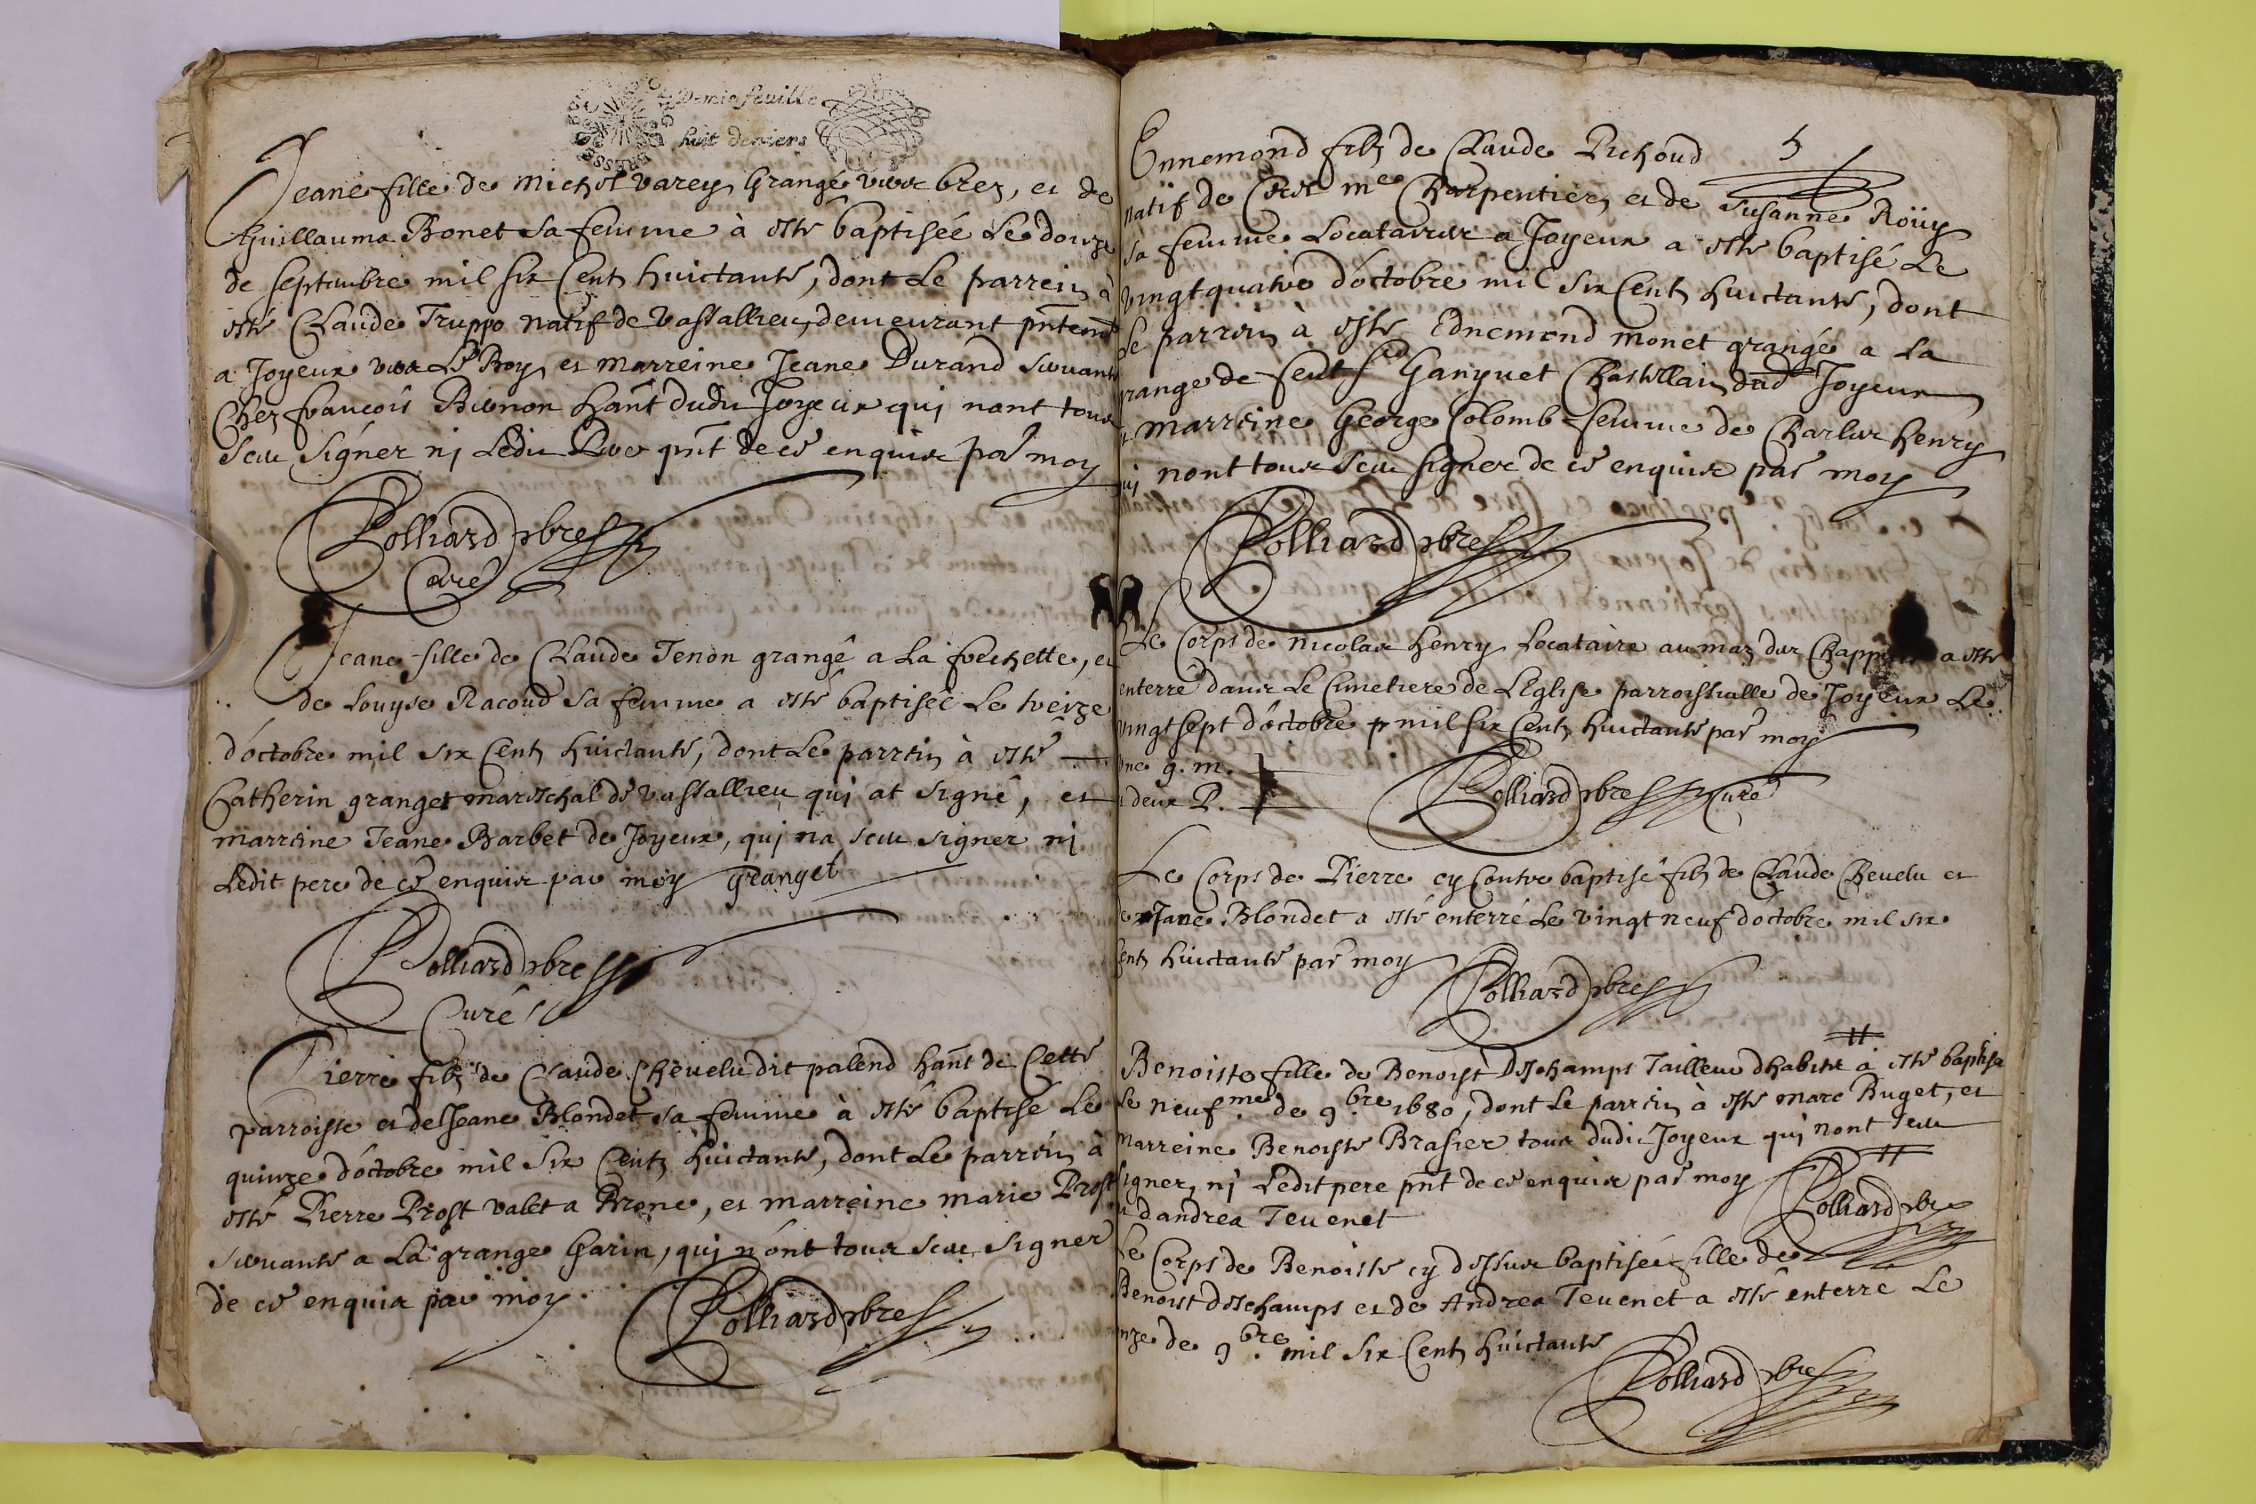 Demie feuille
huit deniers
Jeane fille de Michel Varey Grangé
Guillauma Bonet sa femme à esté baptisée Le douze
de Septembre mil six Cent huictante, dont Le parrein à
esté Claude Truppo natif de Vassallieu, demeurant pntemt
a Joyeux Le Roy et marreine Jeane Durand servante
Chez francois hant dudit Joyeux qui nont tous
sceu signer ni Ledit pnt de ce enquis par moy
Polliard pbre
Curé
Jeane fille de Claude Tenon grangé a La frechette, et
de Louyse Racoud sa femme a esté baptisée Le treize
d'octobre mil six Cent huictante, dont Le parrein à esté
Catherin granget mareschal de Vassallieu qui at signé, et
marreine Jeane Barbet de Joyeux, qui na sceu signer ni
Ledit pere de ce enquis par moy Granget
Polliard pbre
Curé
Pierre fils de Claude Chevelu dit palend hant de Cette
parroisse et de Jeane Blondet sa femme à esté baptisé Le
quinze d'octobre mil six Cent huictante, dont Le parrein à
esté Pierre Prost valet a Brone, et marreine marie Prost
servante a La grange Garin, qui n'ont tous sceu signer
de ce enquis par moy.
Polliard pbre
5
Ennemond fils de Claude Pichoud
natif de me Charpentier, et de Susanne Roüy
sa femme Locataires a Joyeux a esté baptisé Le
vingtquatre d'octobre mil six Cent huictante, dont
Le parrein à esté Ednemond monet grangé a La
grange de feu Sr Ganyuet Chastellain dud Joyeux
et marreine George Colomb femme de Charles henry
qui nont tous sceu signer de ce enquis par moy
Polliard pbre
Le Corps de Nicolas henry Locataire au mas des a esté
enterré dans Le Cimetiere de L'eglise parroissialle de Joyeux Le
vingtsept d'octobre mil six Cent huictante par moy
une g. m.
deux P.
Polliard pbre Curé
Le Corps de Pierre cy Contre baptisé fils de Claude Chevelu et
de Jane Blondet a esté enterré Le vingt neuf d'octobre mil six
Cent huictante par moy
Polliard pbre
Benoiste fille de Benoist Deschamps Tailleur dhabits à esté baptisé
Le neufme de 9bre 1680, dont Le parrein à esté marc Buget, et
marreine Benoiste Brasier tous dudit Joyeux qui nont sceu
signer, ni Ledit pere pnt de ce enquis par moy
et dandrea Tevenet
Polliard pbre
Le Corps de Benoiste cy dessus baptisée fille de
Benoist deschamps et de Andrea Tevenet a esté enterré Le
onze de 9bre mil six Cent huictante
Polliard pbre